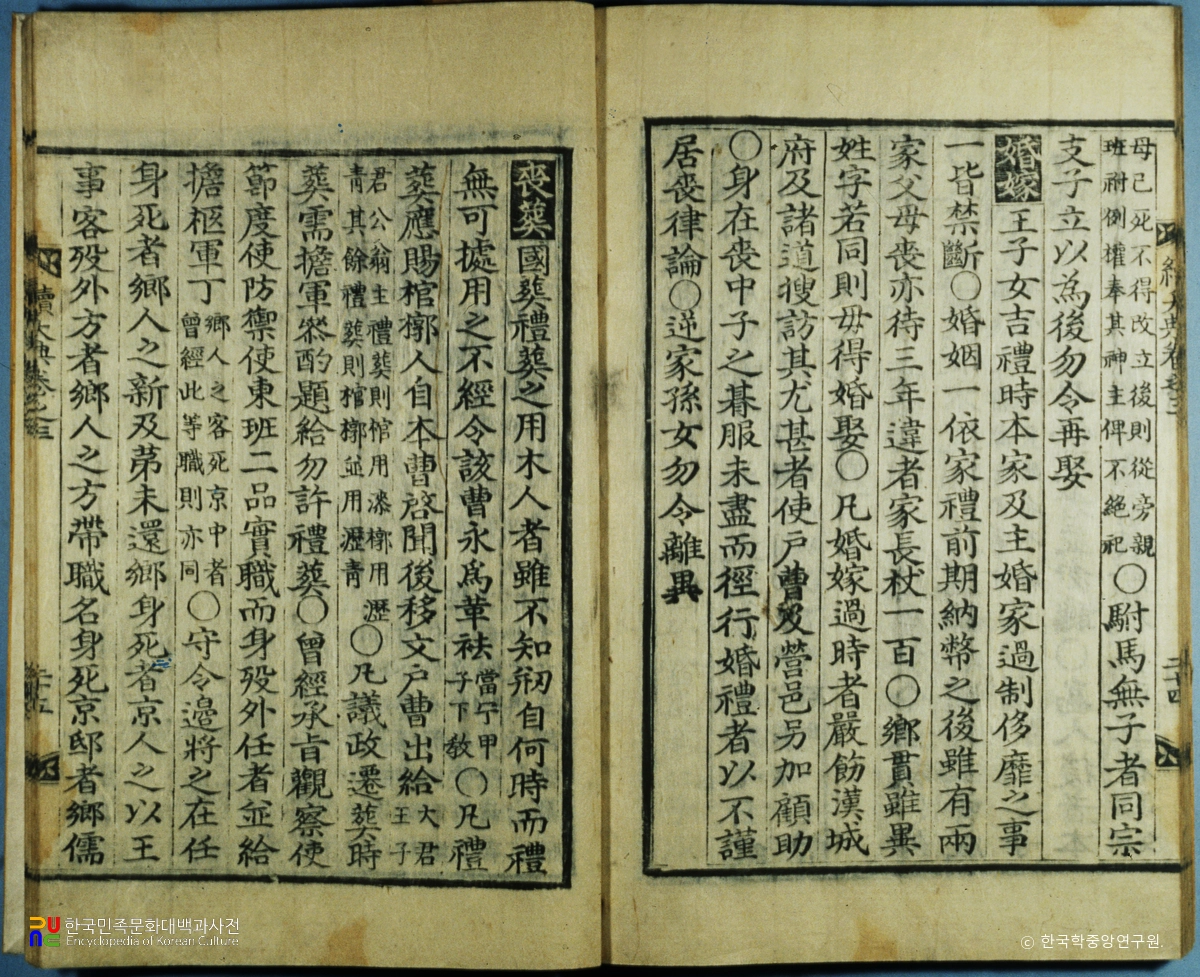 母已死不得改立後則從旁親
班祔例權奉其神主俾不絶祀
○駙馬無子者同宗
支子立以爲後勿令再娶
婚嫁王子女吉禮時本家及主婚家過制侈靡之事
一皆禁斷○婚姻一依家禮前期納幣之後雖有兩
家父母喪亦待三年違者家長杖一百○鄉貫雖異
姓字若同則毋得婚娶○凡婚嫁過時者嚴飭漢城
府及諸道搜訪其尤甚者使戶曹及營邑另加顧助
○身在喪中子之朞服未盡而徑行婚禮者以不謹
居喪律論○逆家孫女勿令離異
二十四
喪葬國葬禮葬之用木人者雖不知刱自何時而禮
無可據用之不經令該曹永爲革祛
當宁甲
子下敎
○凡禮
葬應賜棺槨人自本曹啓聞後移文戶曹出給
大君
王子
君公翁主禮葬則棺用漆槨用瀝
靑其餘禮葬則棺槨並用瀝靑
○凡議政遷葬時
葬需擔軍參酌題給勿許禮葬○曾經承旨觀察使
節度使防禦使東班二品實職而身歿外任者並給
擔柩軍丁
鄉人之客死京中者
曾經此等職則亦同
○守令邊將之在任
身死者鄉人之新及第未還鄉身死者京人之以王
事客歿外方者鄉人之方帶職名身死京邸者鄉儒
續大典卷之三
二十五
한국민족문화대백과사전
Encyclopedia of Korean Culture
© 한국학중앙연구원.